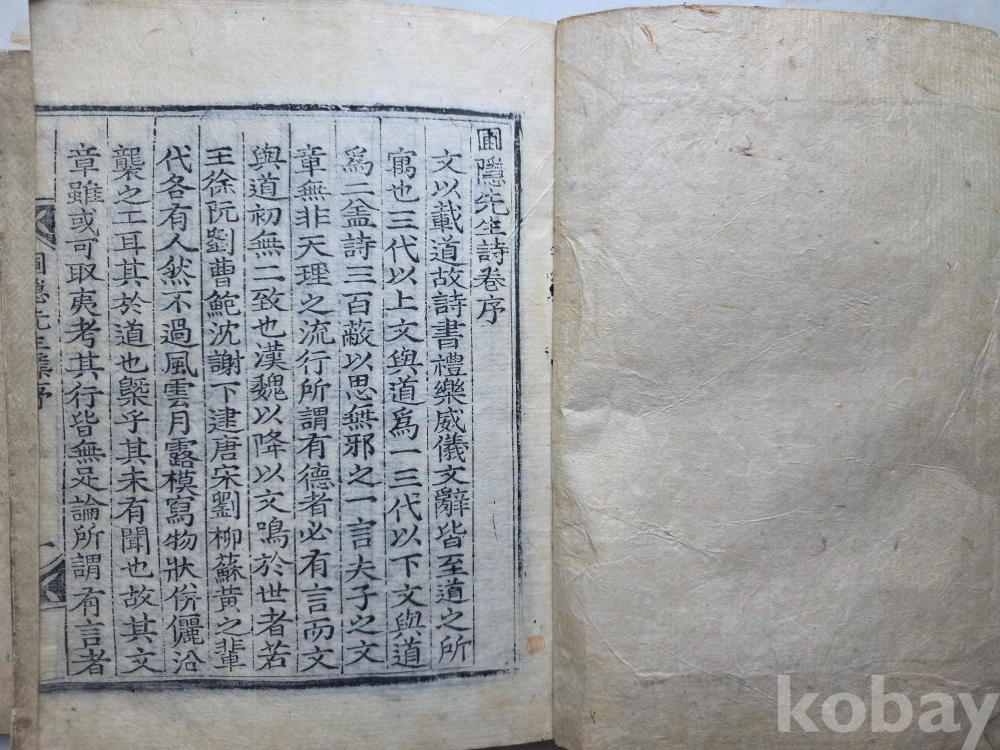 圃隱先生詩卷序
文以載道故詩書禮樂威儀文辭皆至道之所
寓也三代以上文與道爲一三代以下文與道
爲二盖詩三百蔽以思無邪之一言夫子之文
章無非天理之流行所謂有德者必有言而文
與道初無二致也漢魏以降以文鳴於世者若
王徐阮劉曹鮑沈謝下逮唐宋劉柳蘇黃之輩
代各有人然不過風雲月露模寫物狀俻儷沿
襲之工耳其於道也槩乎其未有聞也故其文
章雖或可取夷考其行皆無足論所謂有言者
圃隱先生集序
一
kobay